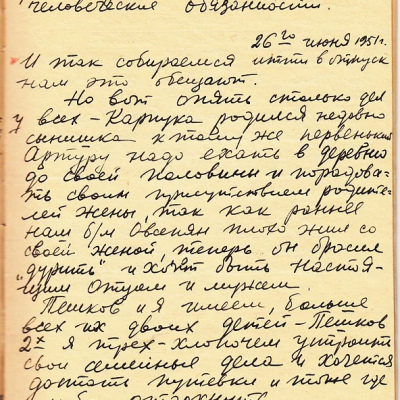 человеческие обязанности.
26го июня 1951 г.
И так собираемся итти в отпуск
нам это обещают.
Но вот опять столько дел
у всех - Карпука родился недавно
сынишка к тому же первенький
Артуру надо ехать в деревню
до своей половины и порадова-
ть своим присутствием родите-
лей жены, так как раннее
нам б/м Овсепян плохо жил со
своей женой, теперь он бросил
"дурить" и хочет быть настоя-
щим отцом и мужем.
Пешков и я имеем, больше
всех их двоих детей - Пешков
2х я трех - хлопочем устроить
свои семейные дела и хочется
достать путевки и тоже где
отдохнуть